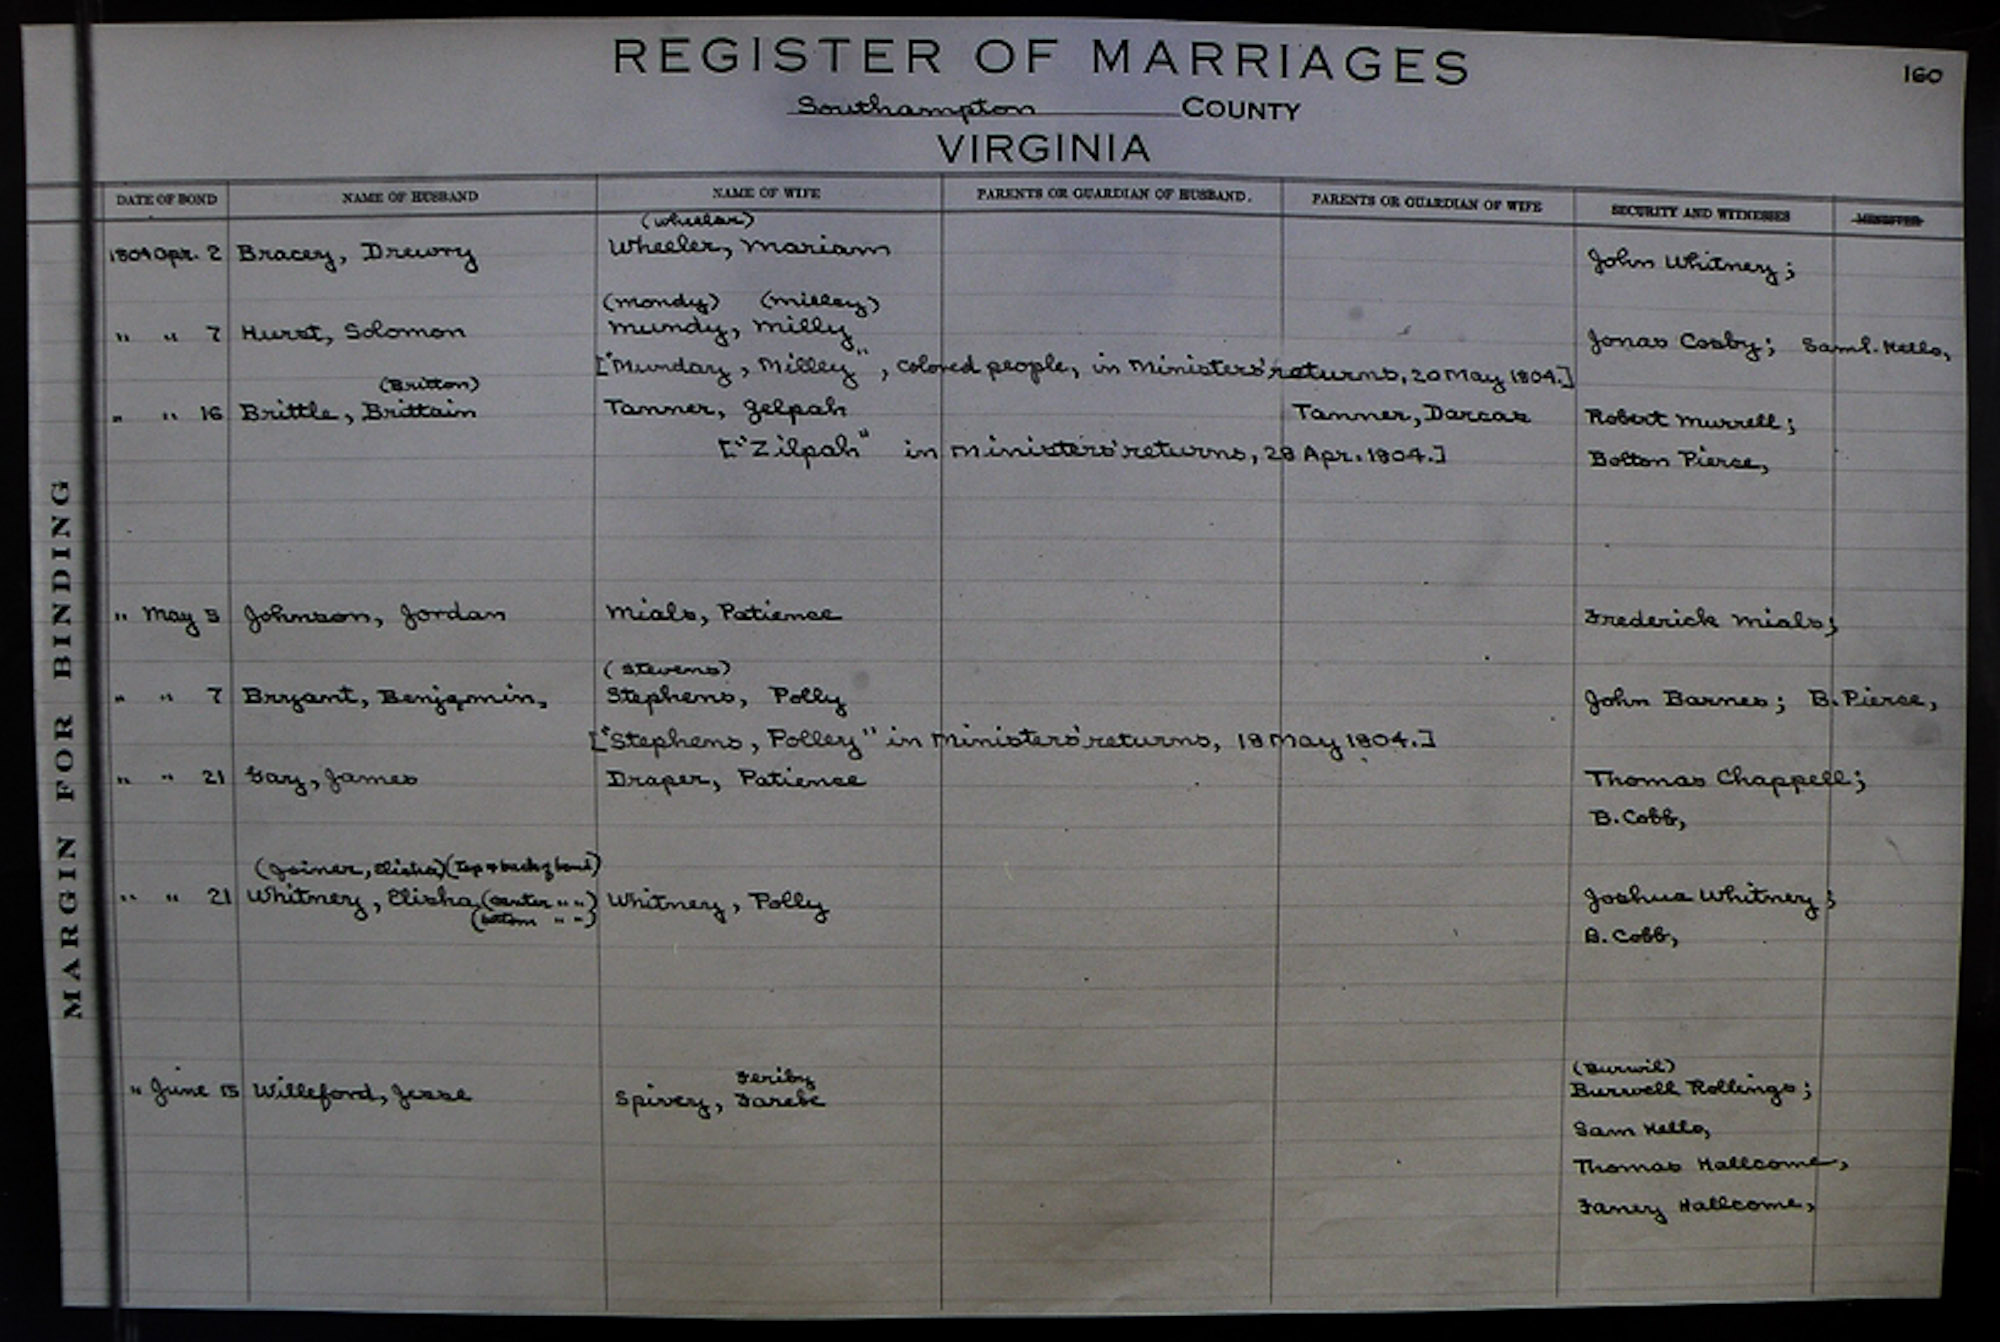 REGISTER OF MARRIAGES
160
Southampton COUNTY
VIRGINIA
DATE OF BOND NAME OF HUSBAND NAME OF WIFE PARENTS OR GUARDIAN OF HUSBAND. PARENTS OR GUARDIAN OF WIFE SECURITY AND WITNESSES MINISTER
(Wheelar)
1804 Apr. 2 Bracey, Drewry Wheeler, Mariam John Whitney;
(Mondy) (Milley)
" " 7 Hurst, Solomon Mundy, Milly Jonas Cosby; Saml. Kello,
["Munday, Milley", colored people, in Ministers' returns, 20 May 1804.]
(Britton)
" " 16 Brittle, Brittain Tanner, Zelpah Tanner, Darcas Robert Murrell;
["Zilpah" in Ministers' returns, 28 Apr. 1804.] Bolton Pierce,
" May 5 Johnson, Jordan Mials, Patience Frederick Mials;
(Stevens)
" " 7 Bryant, Benjamin, Stephens, Polly John Barnes; B. Pierce,
["Stephens, Polley" in Ministers' returns, 18 May 1804.]
" " 21 Gay, James Draper, Patience Thomas Chappell;
B. Cobb,
(Joiner, Elisha) (Top & back of bond)
" " 21 Whitney, Elisha (center " ") Whitney, Polly Joshua Whitney;
(bottom " ")
B. Cobb,
(Burwil)
Feriby
" June 15 Willeford, Jesse Spivey, Farebe Burwell Rollings;
Sam Kello,
Thomas Hallcome,
Faney Hallcome,
MARGIN FOR BINDING